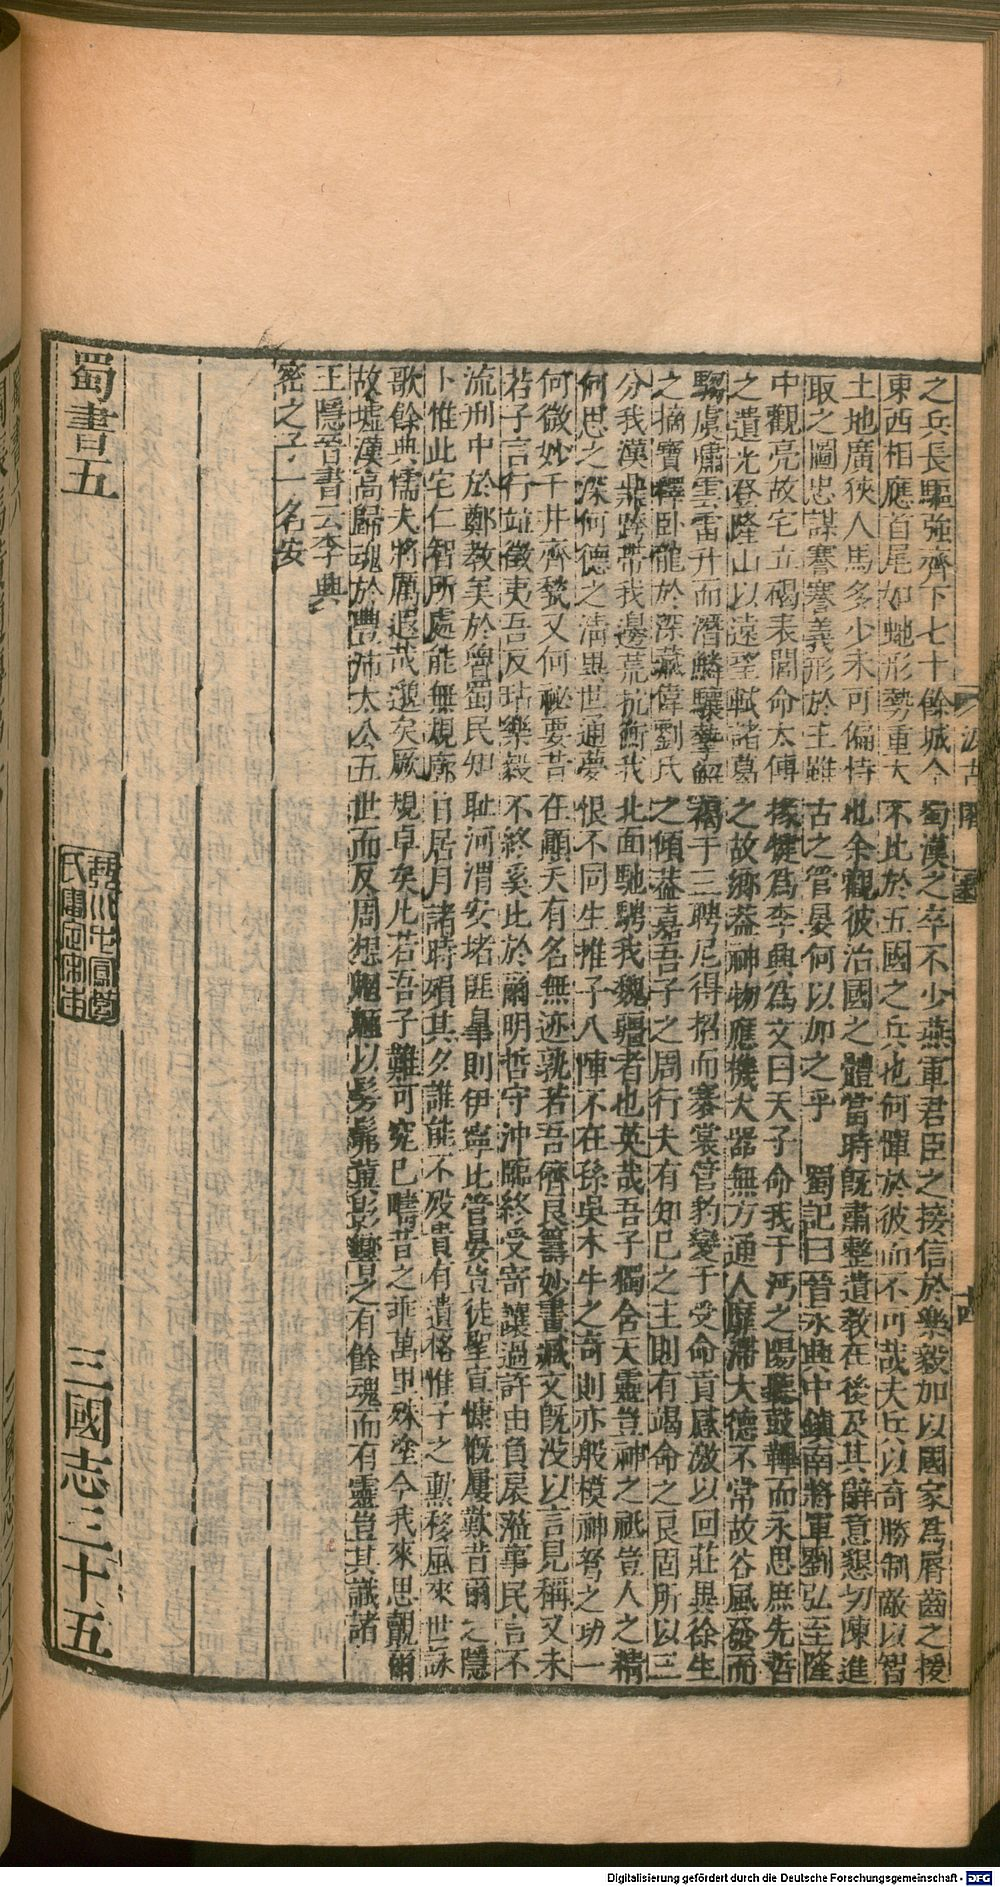 之兵長驅強齊下七十餘城今蜀漢之卒不少燕軍君臣之接信於樂毅加以國家爲脣齒之援
東西相應首尾如虵形勢重大不比於五國之兵也何憚於彼而不可哉夫兵以奇勝制敵以智
土地廣狹人馬多少未可偏恃也余觀彼治國之體當時旣肅整遺教在後及其辭意懇切陳進
取之圖忠謀謇謇義形於主雖古之管晏何以加之乎 蜀記曰晉永興中鎮南將軍劉弘至隆
中觀亮故宅立碣表閭命太傅掾犍爲李興爲文曰天子命我于沔之陽聽鼓鼙而永思庶先哲
之遺光登隆山以遠望軾諸葛之故鄉蓋神物應機大器無方通人靡滯大德不常故谷風發而
騶虞嘯雲雷升而潛鱗驤摯解褐于三聘尼得招而褰裳管豹變于受命貢感激以回莊異徐生
之摘寶釋卧龍於深藏偉劉氏之傾蓋嘉吾子之周行夫有知己之主則有竭命之良固所以三
分我漢鼎跨帶我邊荒抗衡我北面馳騁我魏疆者也英哉吾子獨含天靈豈神之祇豈人之精
何思之深何德之清異世通夢恨不同生推子八陣不在孫吳木牛之奇則亦般模神弩之功一
何微妙千井齊甃又何祕要昔在顚夭有名無迹孰若吾儕良籌妙畫臧文旣没以言見稱又未
若子言行竝徵夷吾反玷樂毅不終奚比於爾明哲守沖臨終受寄讓過許由負扆莅事民言不
流刑中於鄭教美於魯蜀民知恥河渭安堵匪臯則伊寧比管晏豈徒聖宣慷慨屢歎昔爾之隱
卜惟此宅仁智所處能無規廓日居月諸時殞其夕誰能不歿貴有遺格惟子之勳移風來世詠
歌餘典懦夫將厲遐哉邈矣厥規卓矣凡若吾子難可究已疇昔之乖萬里殊塗今我來思覿爾
故墟漢高歸魂於豐沛太公五世而反周想魍魎以髣髴冀影響之有餘魂而有靈豈其識諸
王隱晉書云李興
密之子一名安
蜀書五
三國志三十五
汲古閣
十四